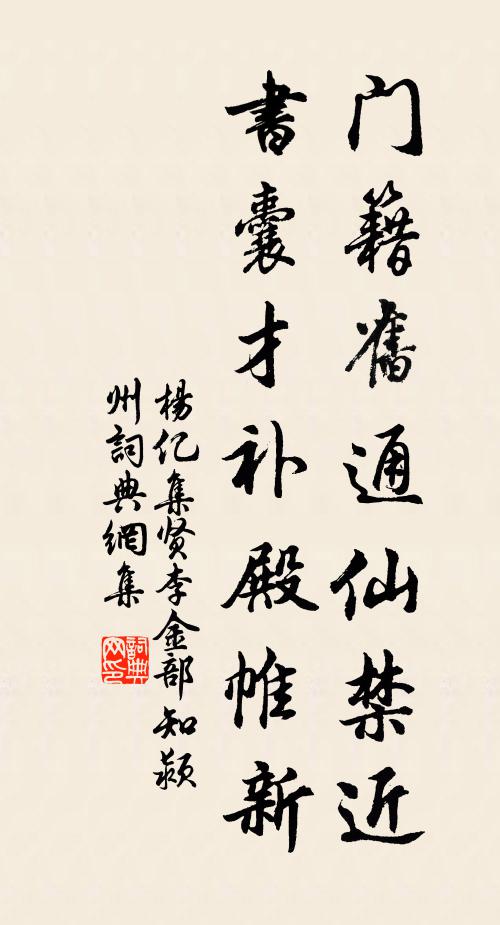 门籍舊通仙禁近
書囊才补殿帷新
楊亿集贤李金部知颍
州詞典網集
詞典
网印